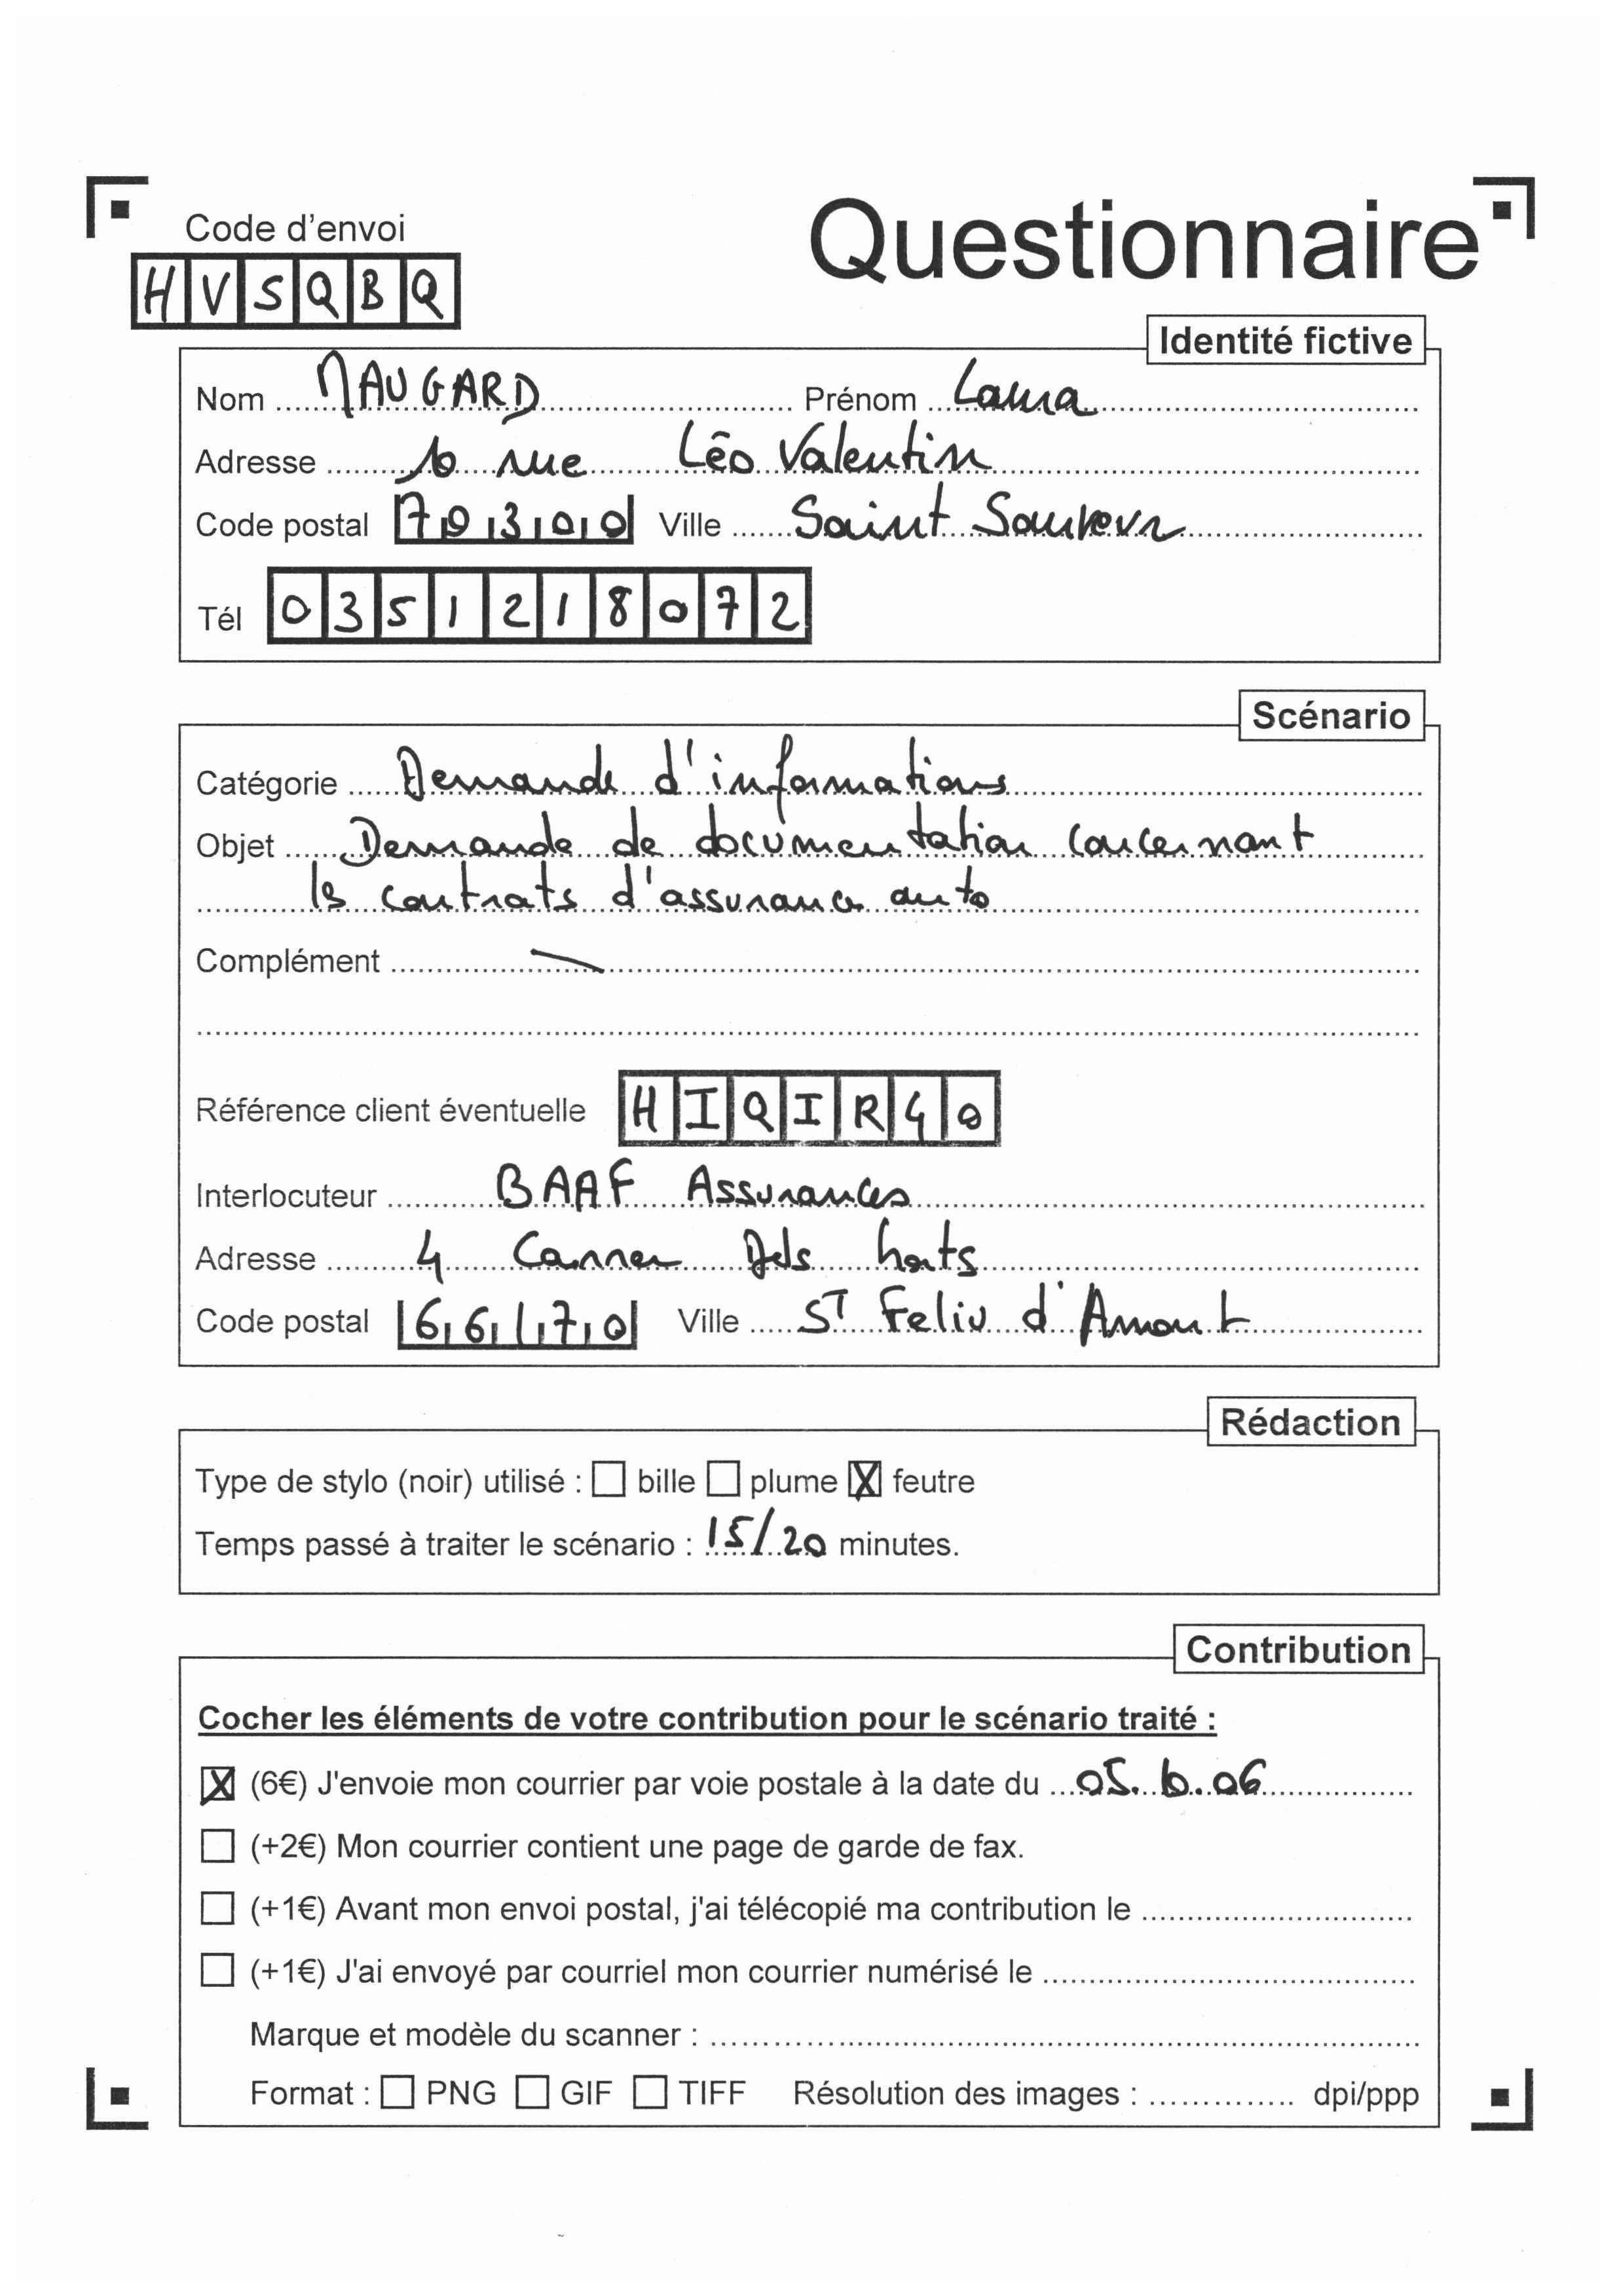 Code d'envoi
Questionnaire
HVSQBQ
Identité fictive
Nom MAUGARD Prénom Laura
Adresse 10 rue Léo Valentin
Code postal 79300 Ville Saint Sauveur
Tél 0351218072
Scénario
Catégorie Demande d'informations
Objet Demande de documentation concernant
les contrats d'assurance auto
Complément
Référence client éventuelle HIQIR40
Interlocuteur BAAF Assurances
Adresse 4 Carrer Dels horts
Code postal 66170 Ville ST Feliu d'Amont
Rédaction
Type de stylo (noir) utilisé : bille plume X feutre
Temps passé à traiter le scénario : 15/20 minutes.
Contribution
Cocher les éléments de votre contribution pour le scénario traité :
X (6€) J'envoie mon courrier par voie postale à la date du 05.10.06
(+2€) Mon courrier contient une page de garde de fax.
(+1€) Avant mon envoi postal, j'ai télécopié ma contribution le
(+1€) J'ai envoyé par courriel mon courrier numérisé le
Marque et modèle du scanner :
Format : PNG GIF TIFF Résolution des images : dpi/ppp